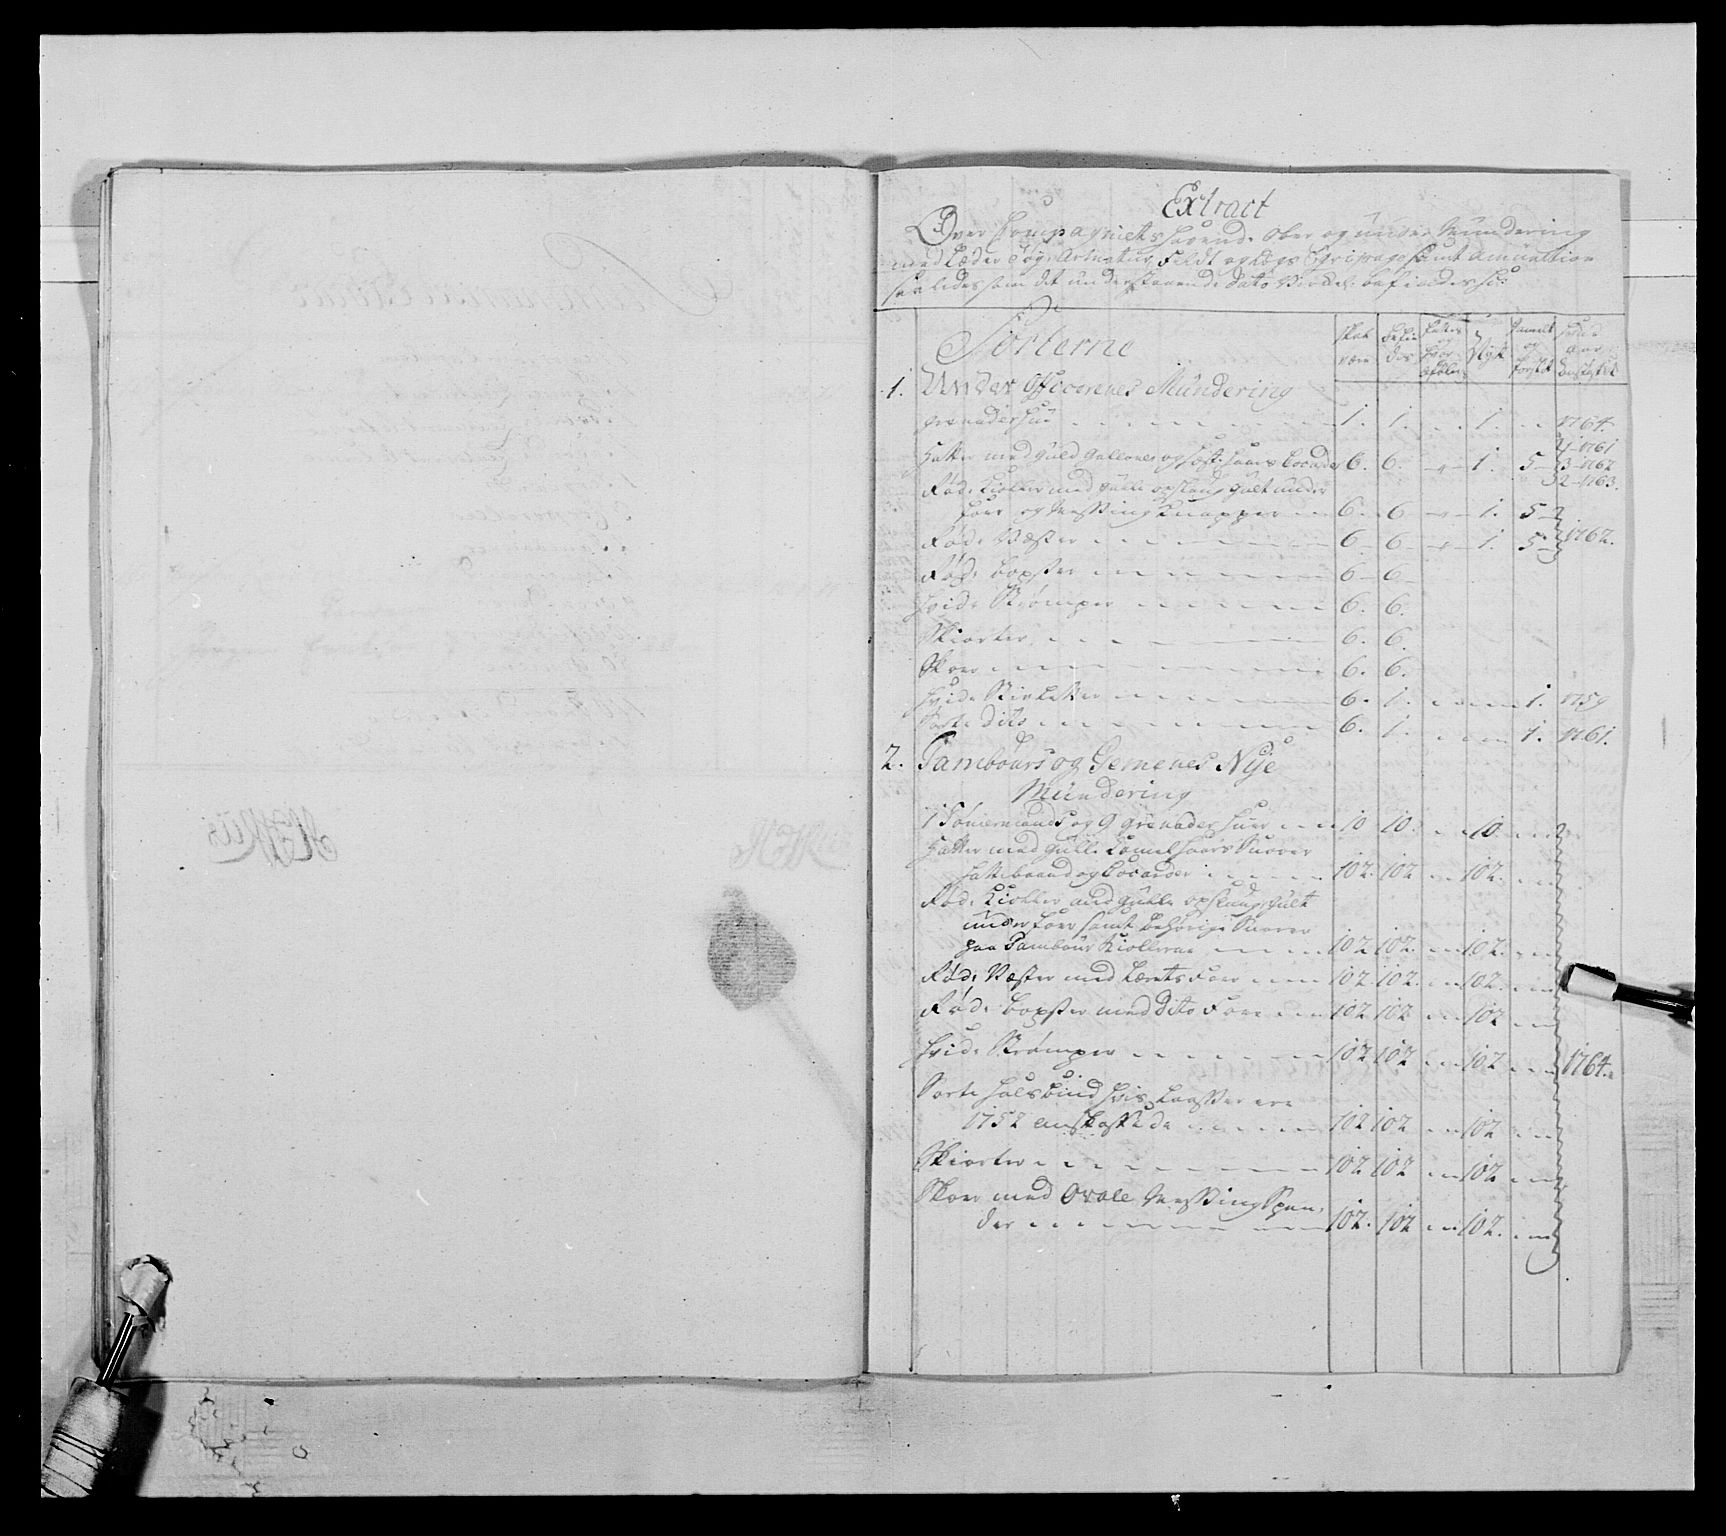 Extract
Over Compagniets havende Ober og under Mundering
med Læder Tøg, Armatur, Feldt og Equipage samt Amunition
saaledes som det understaaende Dato befindes
Sorterne
skal være
befindes
Nyt
Gamelt og forslit
1. Under Officerenes Mundering
grenadeer hue 1. 1. 1. 1764.
Hatter med Guld Galloner og hæste haars Cocarder 6. 6. 1. 5 1-1761
3-1762
2-1763.
Røde Kioller med gule opslaug gult under
foer og Messing Knapper 6 6 1. 5
Røde Vester 6 6 1. 5 1762.
Røde boxser 6 6
hvide Strømper 6. 6.
Skiorter 6. 6.
Skoer 6. 6.
hvide Stivletter 6. 1. 1. 1759
Sorte dito 6. 1. 1. 1761.
2. Tambours og Gemenes Nÿe
Mundering
1 Tømermands og 9 grenadeer huer 10 10. 10
Hatter med gule Camelhaars Snorer
hattebaand og Cocarder 102. 102 102.
Røde Kioller med gule opslaug, gult
underfoer samt behørige Snorer
paa Tambour Kiollerne 102 102. 102.
Røde Vester med Lærets Foer 102 102. 102.
Røde boxser med dito Foer 102 102 102
hvide Strømper 102 102 102 1764.
Sorte halsbind hvis Laasser ere
1752 anskaffede 102 102 102
Skiorter 102 102 102
Skoer med Ovale Messing Spen-
der 102. 102 102.